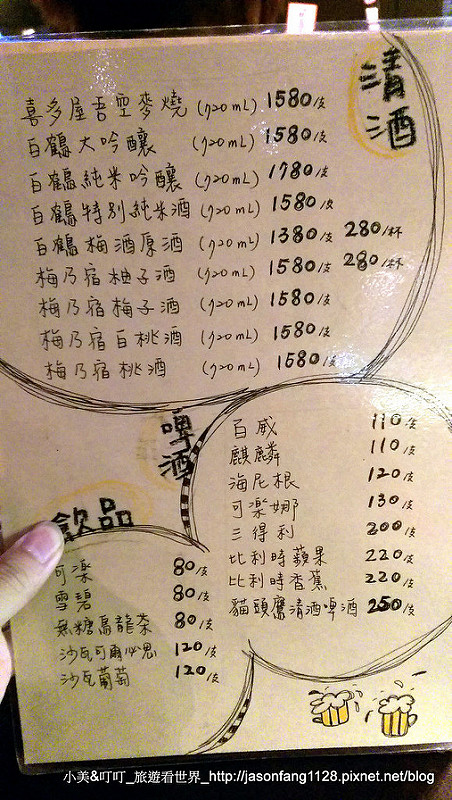 清酒
喜多屋吾空麥燒 (720mL) 1580/支
白鶴大吟釀 (720mL) 1580/支
白鶴純米吟釀 (720mL) 1780/支
白鶴特別純米酒 (720mL) 1580/支
白鶴梅酒原酒 (720mL) 1380/支 280/杯
梅乃宿柚子酒 (720mL) 1580/支 280/杯
梅乃宿梅子酒 (720mL) 1580/支
梅乃宿白桃酒 (720mL) 1580/支
梅乃宿桃酒 (720mL) 1580/支
啤酒
百威 110/支
麒麟 110/支
海尼根 120/支
可樂娜 130/支
三得利 200/支
比利時蘋果 220/支
比利時香蕉 220/支
貓頭鷹清酒啤酒 250/支
飲品
可樂 80/支
雪碧 80/支
無糖烏龍茶 80/支
沙瓦可爾必思 120/支
沙瓦葡萄 120/支
小美&叮叮_旅遊看世界_http://jasonfang1128.pixnet.net/blog